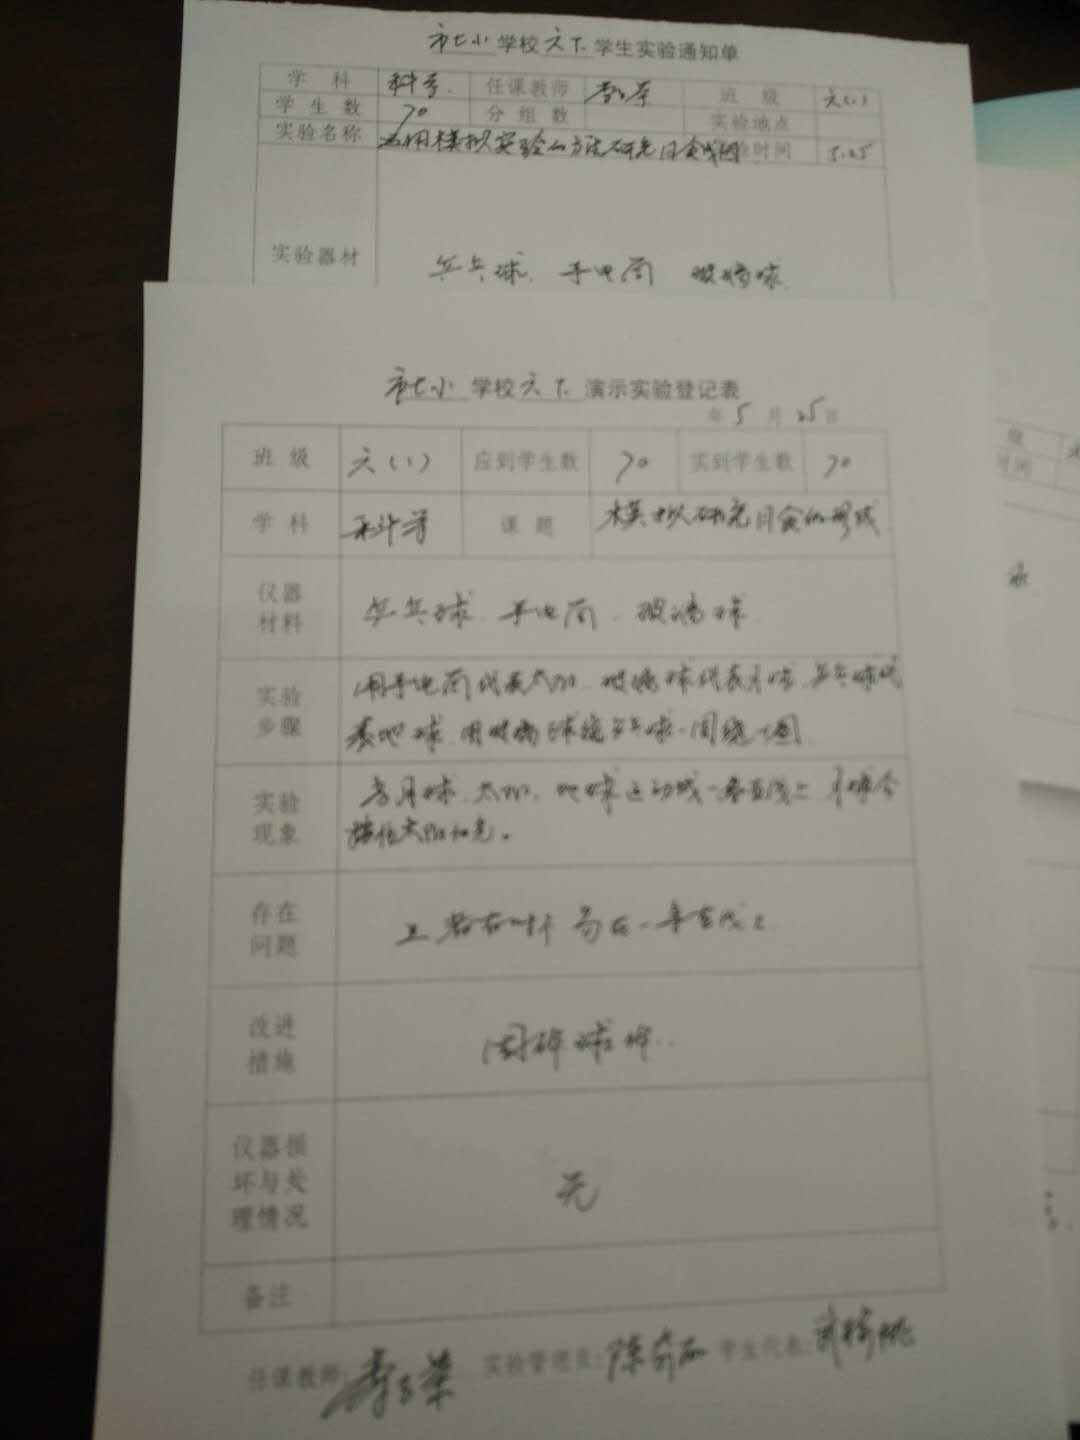 市七小学校六下学生实验通知单
学科 科学 任课教师 班级 六(1)
学生数 70 分组数 实验地点
实验名称 运用模拟实验的方法研究日食成因 时间 5.25
实验器材 乒乓球、手电筒 玻璃球
市七小 学校六下演示实验登记表
年5月25日
班级 六(1) 应到学生数 70 实到学生数 70
学科 科学 课题 模拟研究日食的形成
仪器材料 乒乓球、手电筒、玻璃球
实验步骤 用手电筒代表太阳、玻璃球代表月球、乒乓球代
表地球、用玻璃球绕乒乓球一周绕一圈
实验现象 当月球、太阳、地球运动成一条直线上 月球会
挡住太阳的光。
存在问题 在一条直线上
改进措施
仪器损坏与处理情况 无
备注
任课教师: 实验管理员: 学生代表: